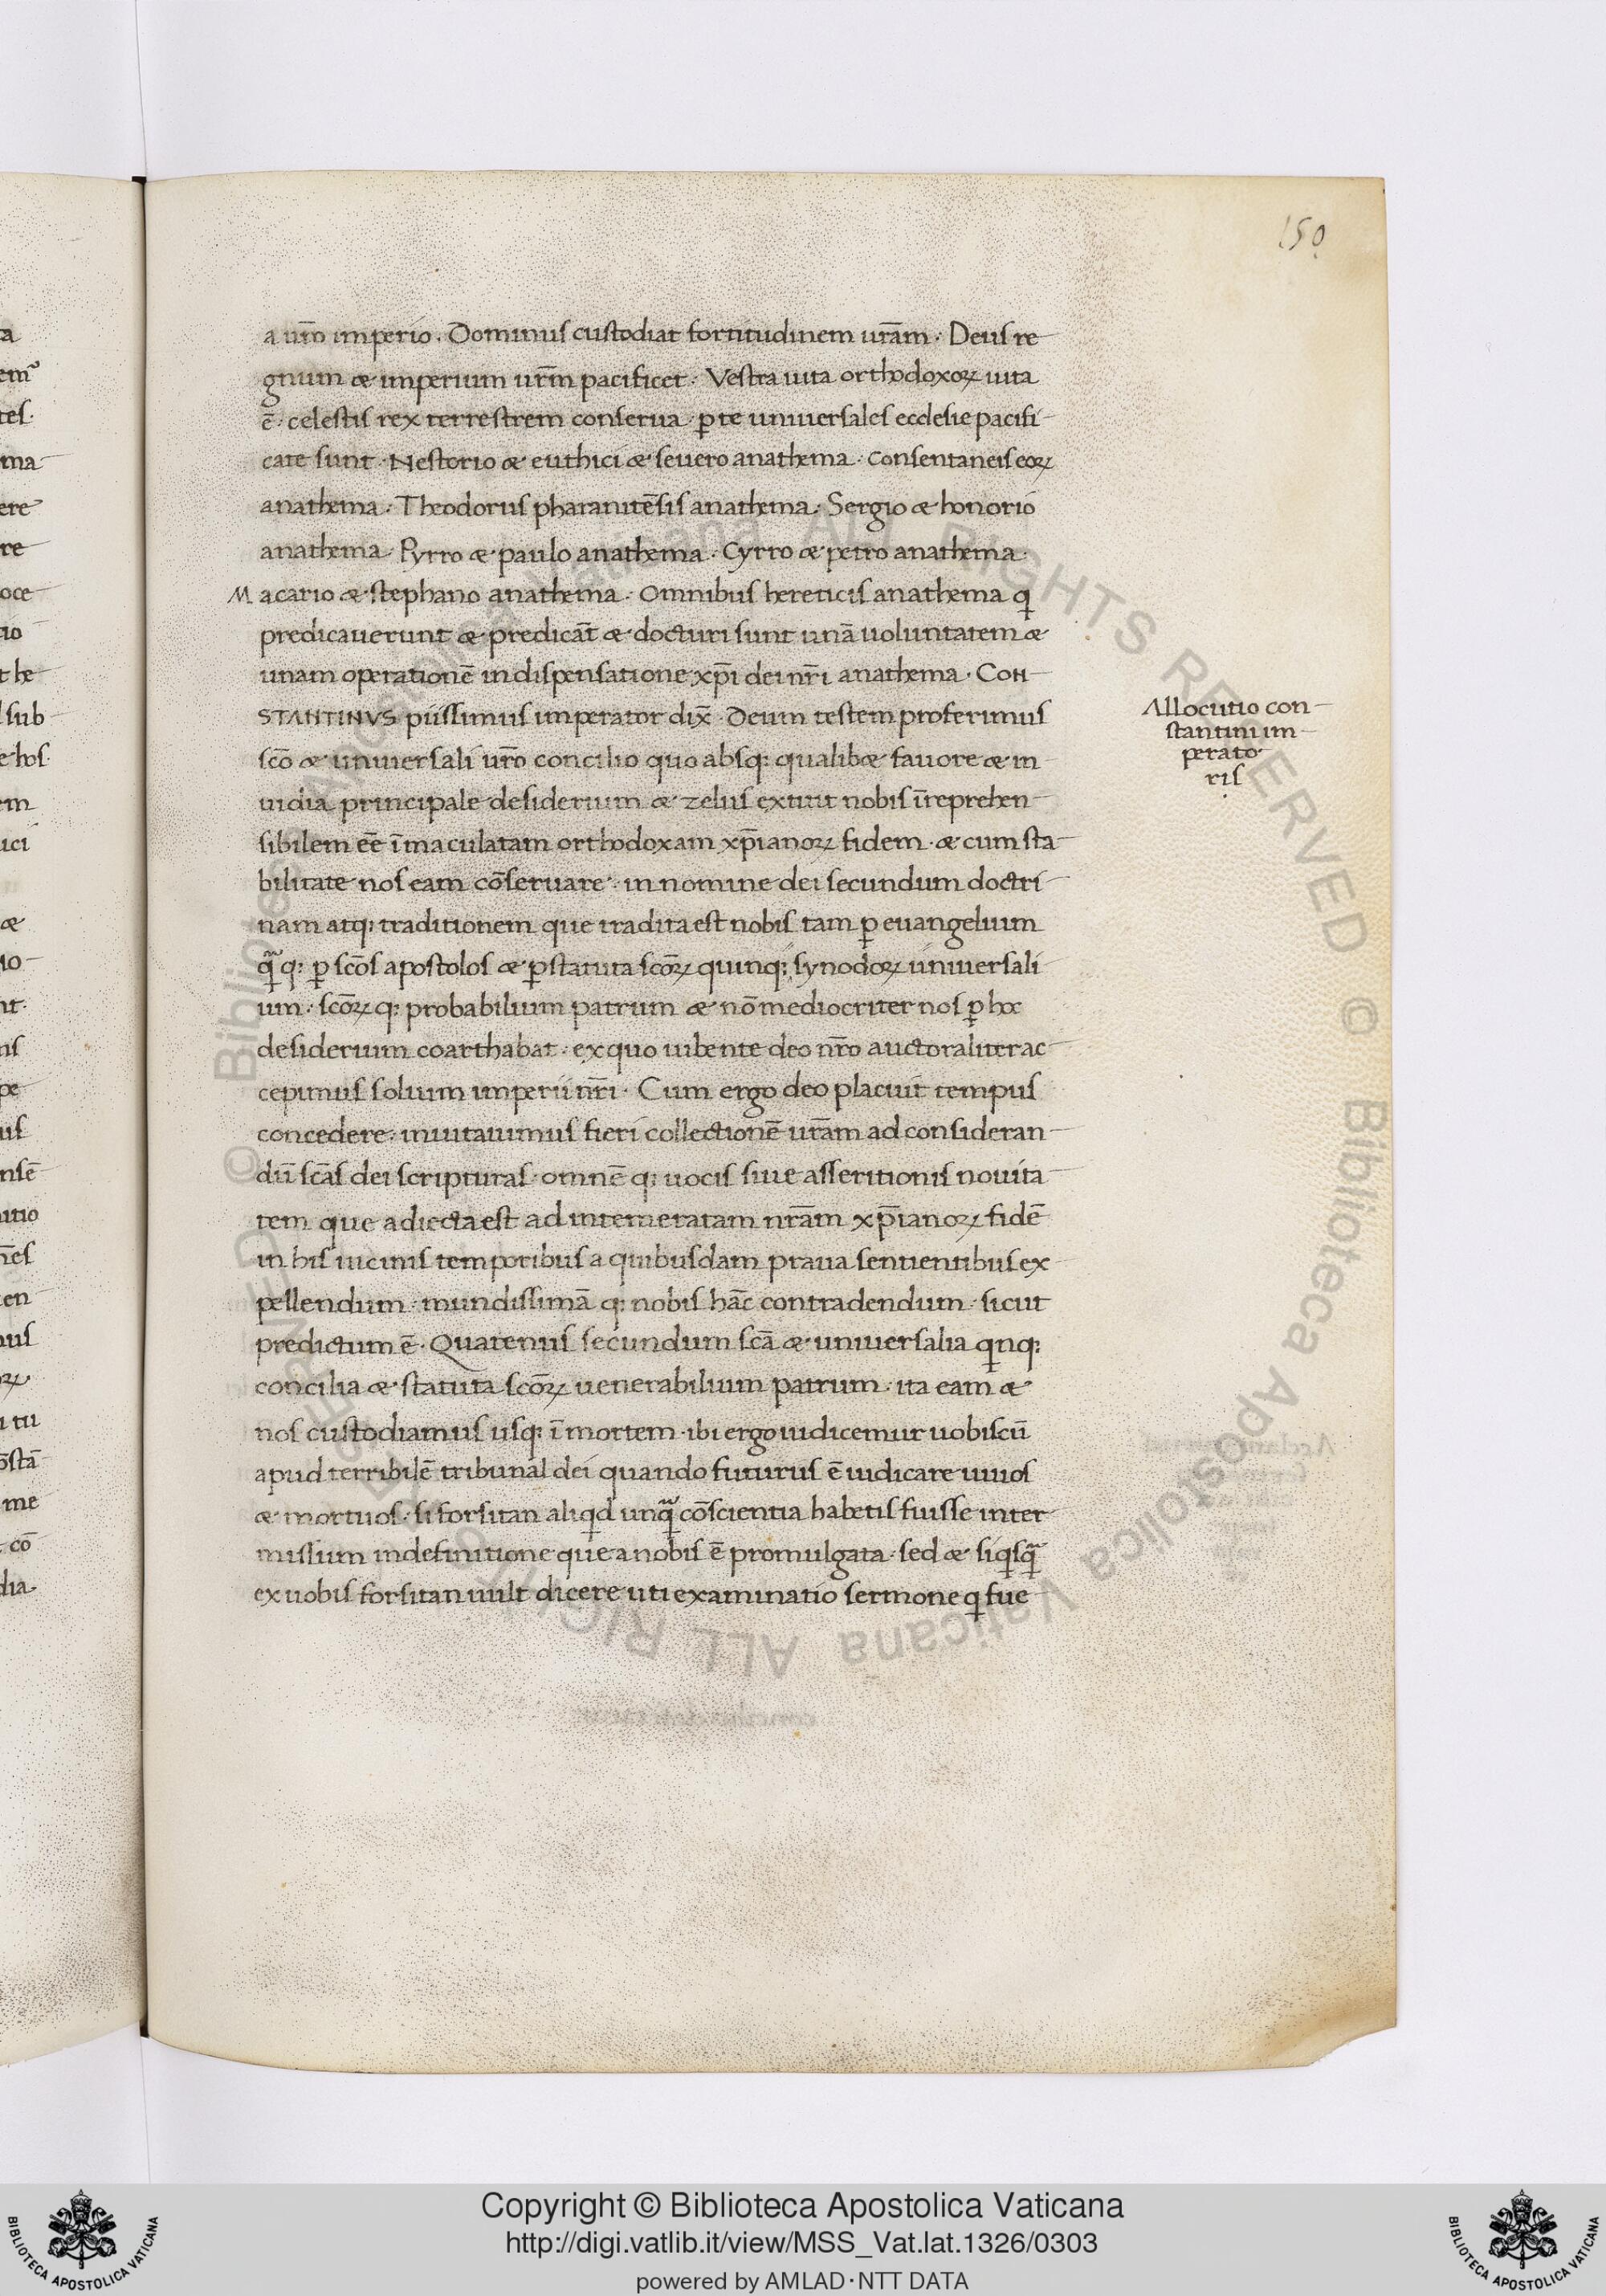 150
a ur̄o imperio. Dominus custodiat fortitudinem ur̄am. Deus re
gnum & imperium ur̄m pacificet. Vestra uita orthodoxoꝝ uita
ē. celestis rex terrestrem conserua. ꝑ te uniuersales ecclesie pacifi
cate sunt. Nestorio & euthici & seuero anathema. Consentaneis eoꝝ
anathema. Theodorus pharanitēsis anathema. Sergio & honorio
anathema. Pyrro & paulo anathema. Cyrro & petro anathema.
Macario & stephano anathema. Omnibus hereticis anathema q
predicauerunt & predicāt & docturi sunt unā uoluntatem &
unam operationē in dispensatione xp̄i dei nr̄i anathema. CON
STANTINVS piissimus imperator dix̄. Deum testem proferimus
sc̄o & uniuersali ur̄o concilio quo absq; qualib& fauore & in
uidia principale desiderium & zelus extitit nobis īreprehen
sibilem eē īmaculatam orthodoxam xp̄ianoꝝ fidem. & cum sta
bilitate nos eam cōseruare. in nomine dei secundum doctri
nam atq; traditionem que tradita est nobis tam ꝑ euangelium
q̄q; ꝑ sc̄os apostolos & ꝑ statuta sc̄oꝝ quinq; synodoꝝ uniuersali
um. sc̄oꝝ q; probabilium patrum & nō mediocriter nos ꝑ hoc
desiderium coarthabat. ex quo iubente deo nr̄o auctoraliter ac
cepimus solium imperii nr̄i. Cum ergo deo placuit tempus
concedere. inuitauimus fieri collectionē ur̄am ad consideran
dū sc̄as dei scripturas. omnē q; uocis siue asseritionis nouita
tem que adiecta est ad intemeratam nr̄am xp̄ianoꝝ fidē
in his uicinis temporibus a quibusdam praua sentientibus ex
pellendum. mundissimā q; nobis hāc contradendum. sicut
predictum ē. Quatenus secundum sc̄a & uniuersalia qinq;
concilia & statuta sc̄oꝝ uenerabilium patrum. ita eam &
nos custodiamus usq; ī mortem. ibi ergo iudicemur uobiscū
apud terribilē tribunal dei quando futurus ē iudicare uiuos
& mortuos. si forsitan aliqd unq̄ cōscientia habetis fuisse inter
missum in definitione que a nobis ē promulgata. sed & siqsq̄
ex uobis forsitan uult dicere uti examinatio sermone q fue
Allocutio con
stantini im
perato
ris
Copyright © Biblioteca Apostolica Vaticana
http://digi.vatlib.it/view/MSS_Vat.lat.1326/0303
powered by AMLAD·NTT DATA
BIBLIOTECA APOSTOLICA VATICANA
BIBLIOTECA APOSTOLICA VATICANA